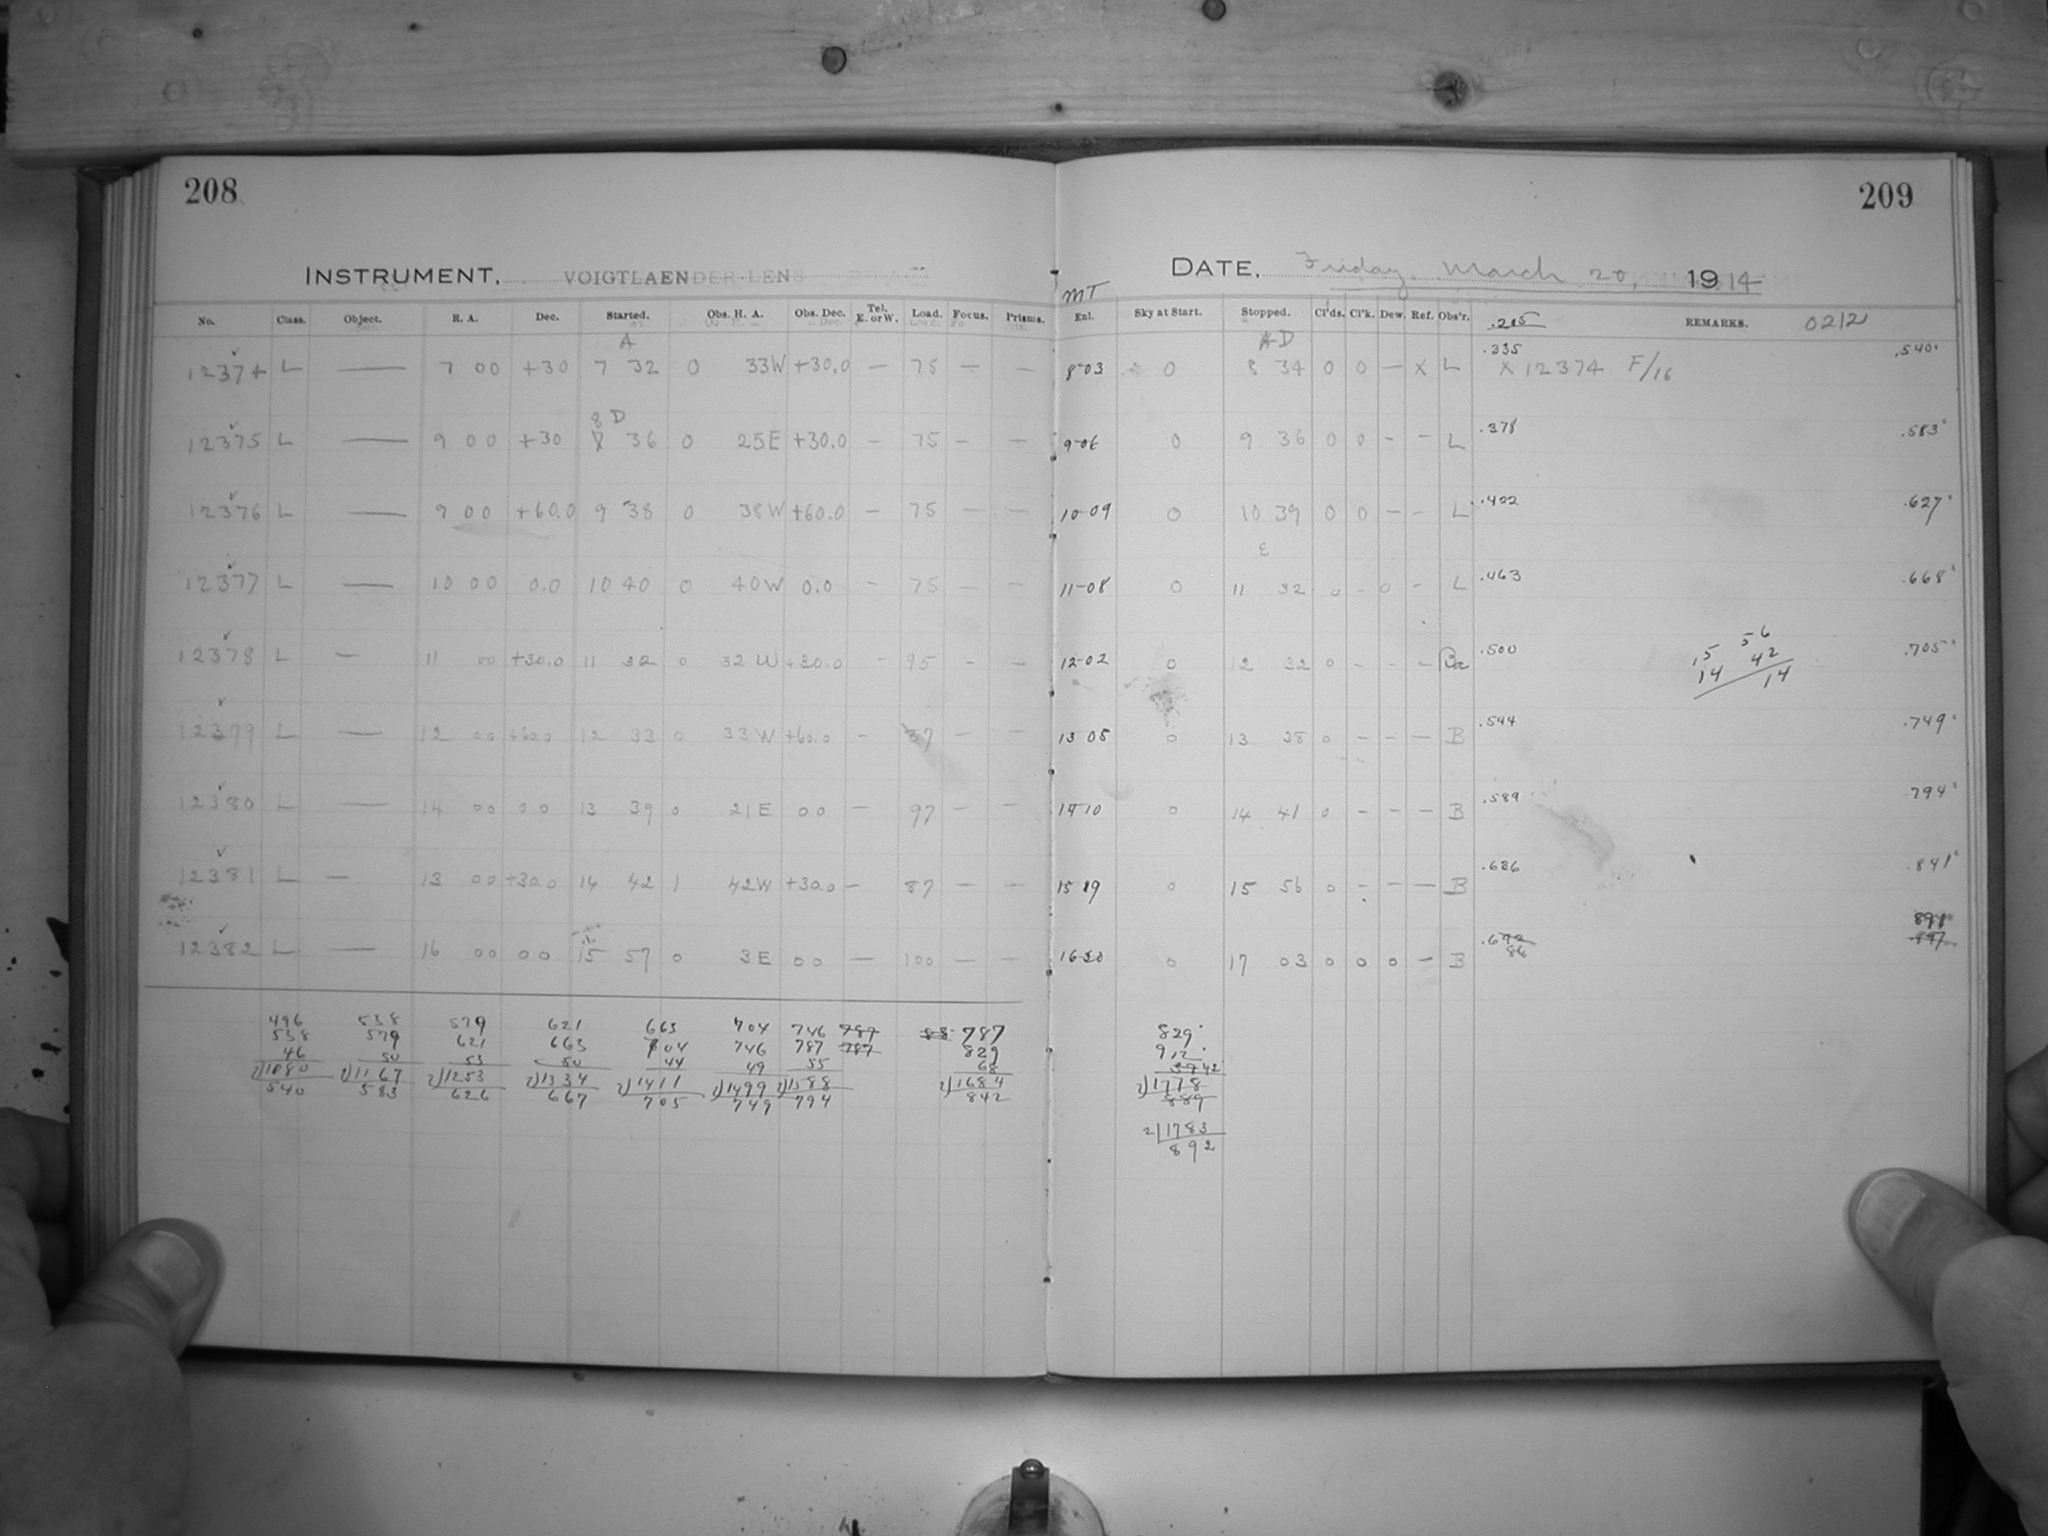 208
209
INSTRUMENT. VOIGTLAENDER LENS
DATE, Friday, March 20, 1914
MT
No. Class. Object. R. A. Dec. Started. Obs. H. A. Obs. Dec. Tel. E. or W. Load. Focus. Prisms. Enl. Sky at Start. Stopped. Cl'ds. Cl'k. Dew. Ref. Obs'r. .205 REMARKS. 0212
A
AD
.335 .540
12374 L — 7 00 +30 7 32 0 33W +30.0 — 75 — — 8-03 0 8 34 0 0 — X L X 12374 F/16
8 D
.378 .583
12375 L — 9 00 +30 7 36 0 25E +30.0 — 75 — — 9-06 0 9 36 0 0 - - L
12376 L — 9 00 +60.0 9 38 0 38W +60.0 — 75 — — 10-09 0 10 39 0 0 - - L .422 .627
E
12377 L — 10 00 0.0 10 40 0 40W 0.0 - 75 — — 11-08 0 11 32 0 - 0 - L .463 .668
12378 L — 11 00 +30.0 11 32 0 32 W +30.0 - 95 - - 12-02 0 12 32 0 - - - Ba .500 .705
15 56
14 42
14
.544 .749
12379 L — 12 00 +60.0 12 33 0 33 W +60.0 - 87 - - 13 05 0 13 38 0 - - - B
.589 .794
12380 L — 14 00 00 13 39 0 21E 00 — 97 - - 14 10 0 14 41 0 - - - B
.636 .841
12381 L — 13 00 +30.0 14 42 1 42W +30.0 — 87 — — 15 19 0 15 56 0 - - — B
.692 86 891 897
12382 L — 16 00 00 15 57 0 3E 00 — 100 - - 16 30 0 17 03 0 0 0 - B
496 538 579 621 663 704 746 787 88 787 829
538 579 621 663 704 746 787 787 829 912
46 50 53 50 44 49 55 68 42
2)1080 2)1167 2)1253 2)1334 2)1411 2)1499 2)1588 2)1684 2)1778
540 583 626 667 705 749 794 842 889
2)1783
892